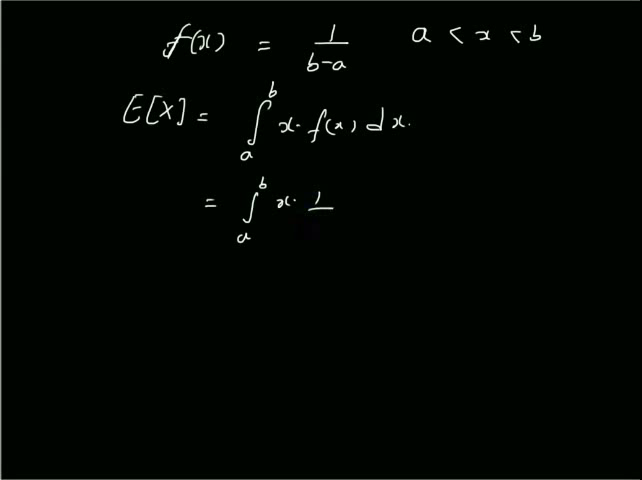 f(x) = 1/(b-a) a < x < b
E[X] = ∫_a^b x · f(x) dx.
= ∫_a^b x · 1/